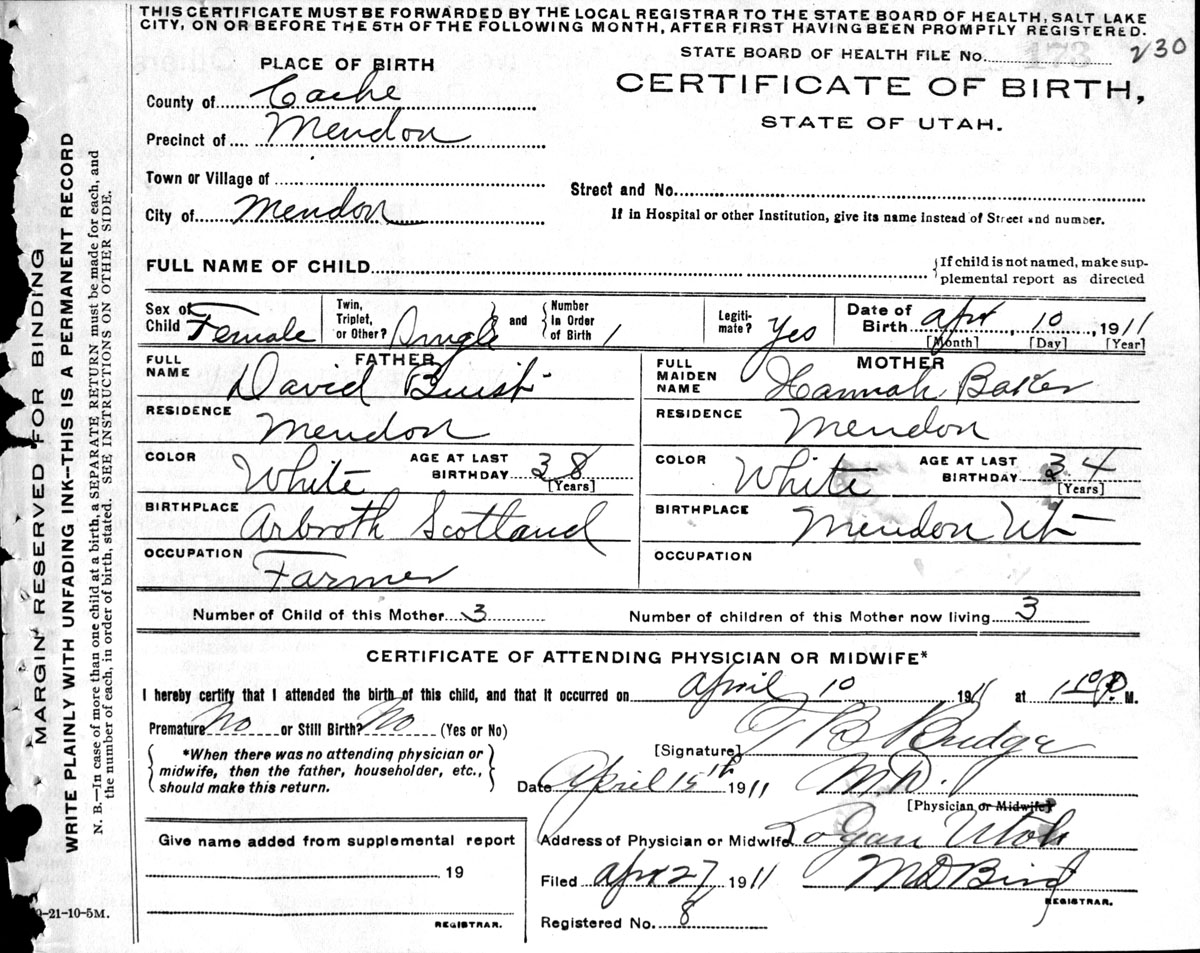 THIS CERTIFICATE MUST BE FORWARDED BY THE LOCAL REGISTRAR TO THE STATE BOARD OF HEALTH, SALT LAKE
CITY, ON OR BEFORE THE 5TH OF THE FOLLOWING MONTH, AFTER FIRST HAVING BEEN PROMPTLY REGISTERED.
STATE BOARD OF HEALTH FILE No. 173 230
PLACE OF BIRTH
CERTIFICATE OF BIRTH,
STATE OF UTAH.
County of Cache
Precinct of Mendon
Town or Village of
Street and No.
City of Mendon
If in Hospital or other Institution, give its name instead of Street and number.
FULL NAME OF CHILD
If child is not named, make sup-
plemental report as directed
Sex of Child Female
Twin, Triplet, or Other? Single and Number in Order of Birth 1
Legiti-mate? Yes
Date of Birth Apr 10, 1911
[Month] [Day] [Year]
FATHER
FULL NAME David Buist
RESIDENCE Mendon
COLOR White AGE AT LAST BIRTHDAY 38 [Years]
BIRTHPLACE Arbroth Scotland
OCCUPATION Farmer
MOTHER
FULL MAIDEN NAME Hannah Baker
RESIDENCE Mendon
COLOR White AGE AT LAST BIRTHDAY 34 [Years]
BIRTHPLACE Mendon Ut
OCCUPATION
Number of Child of this Mother 3 Number of children of this Mother now living 3
CERTIFICATE OF ATTENDING PHYSICIAN OR MIDWIFE*
I hereby certify that I attended the birth of this child, and that it occurred on April 10 1911 at P M.
Premature No or Still Birth? No (Yes or No)
*When there was no attending physician or
midwife, then the father, householder, etc.,
should make this return.
[Signature] T B Budge
Date April 15th 1911 M.D.
[Physician or Midwife]
Address of Physician or Midwife Logan Utah
Filed Apr 27 1911 M D Bird
REGISTRAR.
Registered No. 8
Give name added from supplemental report
19
REGISTRAR.
-21-10-5M.
MARGIN RESERVED FOR BINDING
WRITE PLAINLY WITH UNFADING INK--THIS IS A PERMANENT RECORD
N. B.—In case of more than one child at a birth, a SEPARATE RETURN must be made for each, and
the number of each, in order of birth, stated. SEE INSTRUCTIONS ON OTHER SIDE.